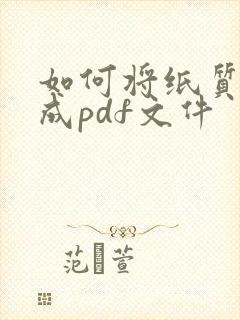 如何将纸质
成pdf文件
范萱